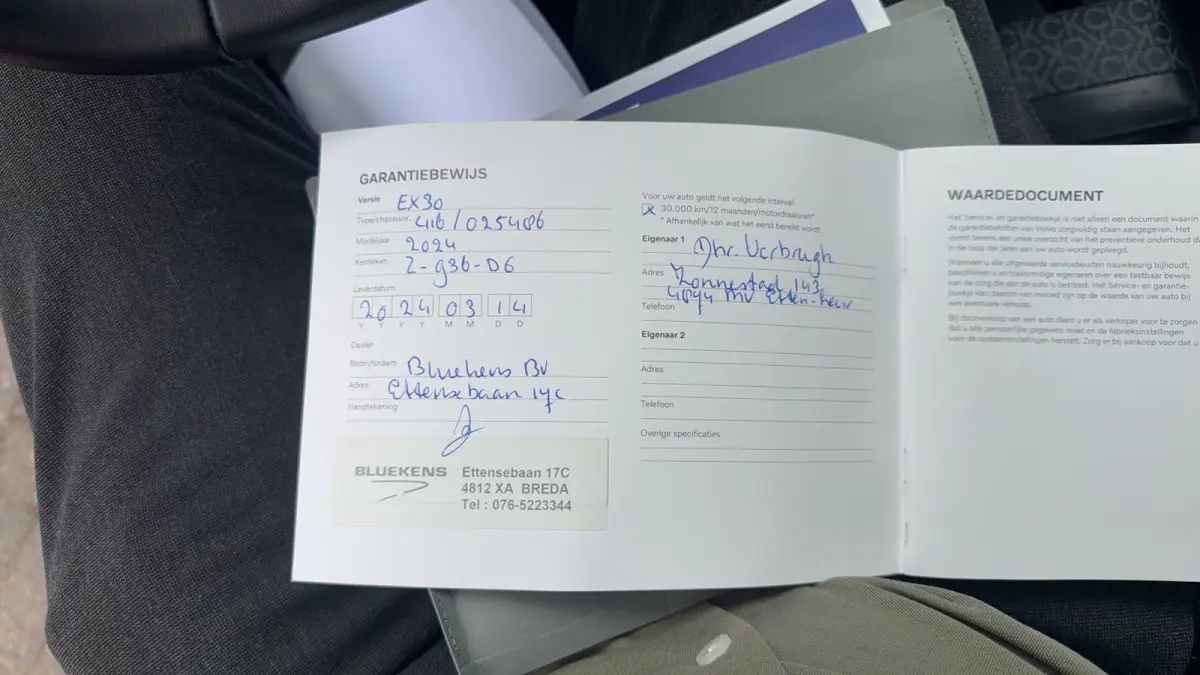 GARANTIEBEWIJS
Versie EX30
Type/chassisnr. 416/025486
Modeljaar 2024
Kenteken Z-936-D6
Leverdatum
2024 03 14
Y Y Y Y M M D D
Dealer
Bedrijfsnaam Bluekens BV
Adres Ettensebaan 17c
Handtekening
BLUEKENS Ettensebaan 17C
4812 XA BREDA
Tel : 076-5223344
Voor uw auto geldt het volgende interval:
x 30.000 km/12 maanden/motordraaiuren*
* Afhankelijk van wat het eerst bereikt wordt
Eigenaar 1 Dhr. Verbrugh
Adres 143
Etten-Leur
Telefoon
Eigenaar 2
Adres
Telefoon
Overige specificaties
WAARDEDOCUMENT
Het Service- en garantieboekje is niet alleen een document waarin
de garantiebeloften van Volvo zorgvuldig staan aangegeven. Het
vormt tevens een uniek overzicht van het preventieve onderhoud d
in de loop der jaren aan uw auto wordt gepleegd.
Wanneer u alle uitgevoerde servicebeurten nauwkeurig bijhoudt,
beschikken u en toekomstige eigenaren over een tastbaar bewijs
van de zorg die aan de auto is besteed. Het Service- en garantie-
boekje kan daarom van invloed zijn op de waarde van uw auto bij
een eventuele verkoop.
Bij doorverkoop van een auto dient u er als verkoper voor te zorgen
dat u alle persoonlijke gegevens reset en de fabrieksinstellingen
voor de systeeminstellingen herstelt. Zorg er bij aankoop voor dat u